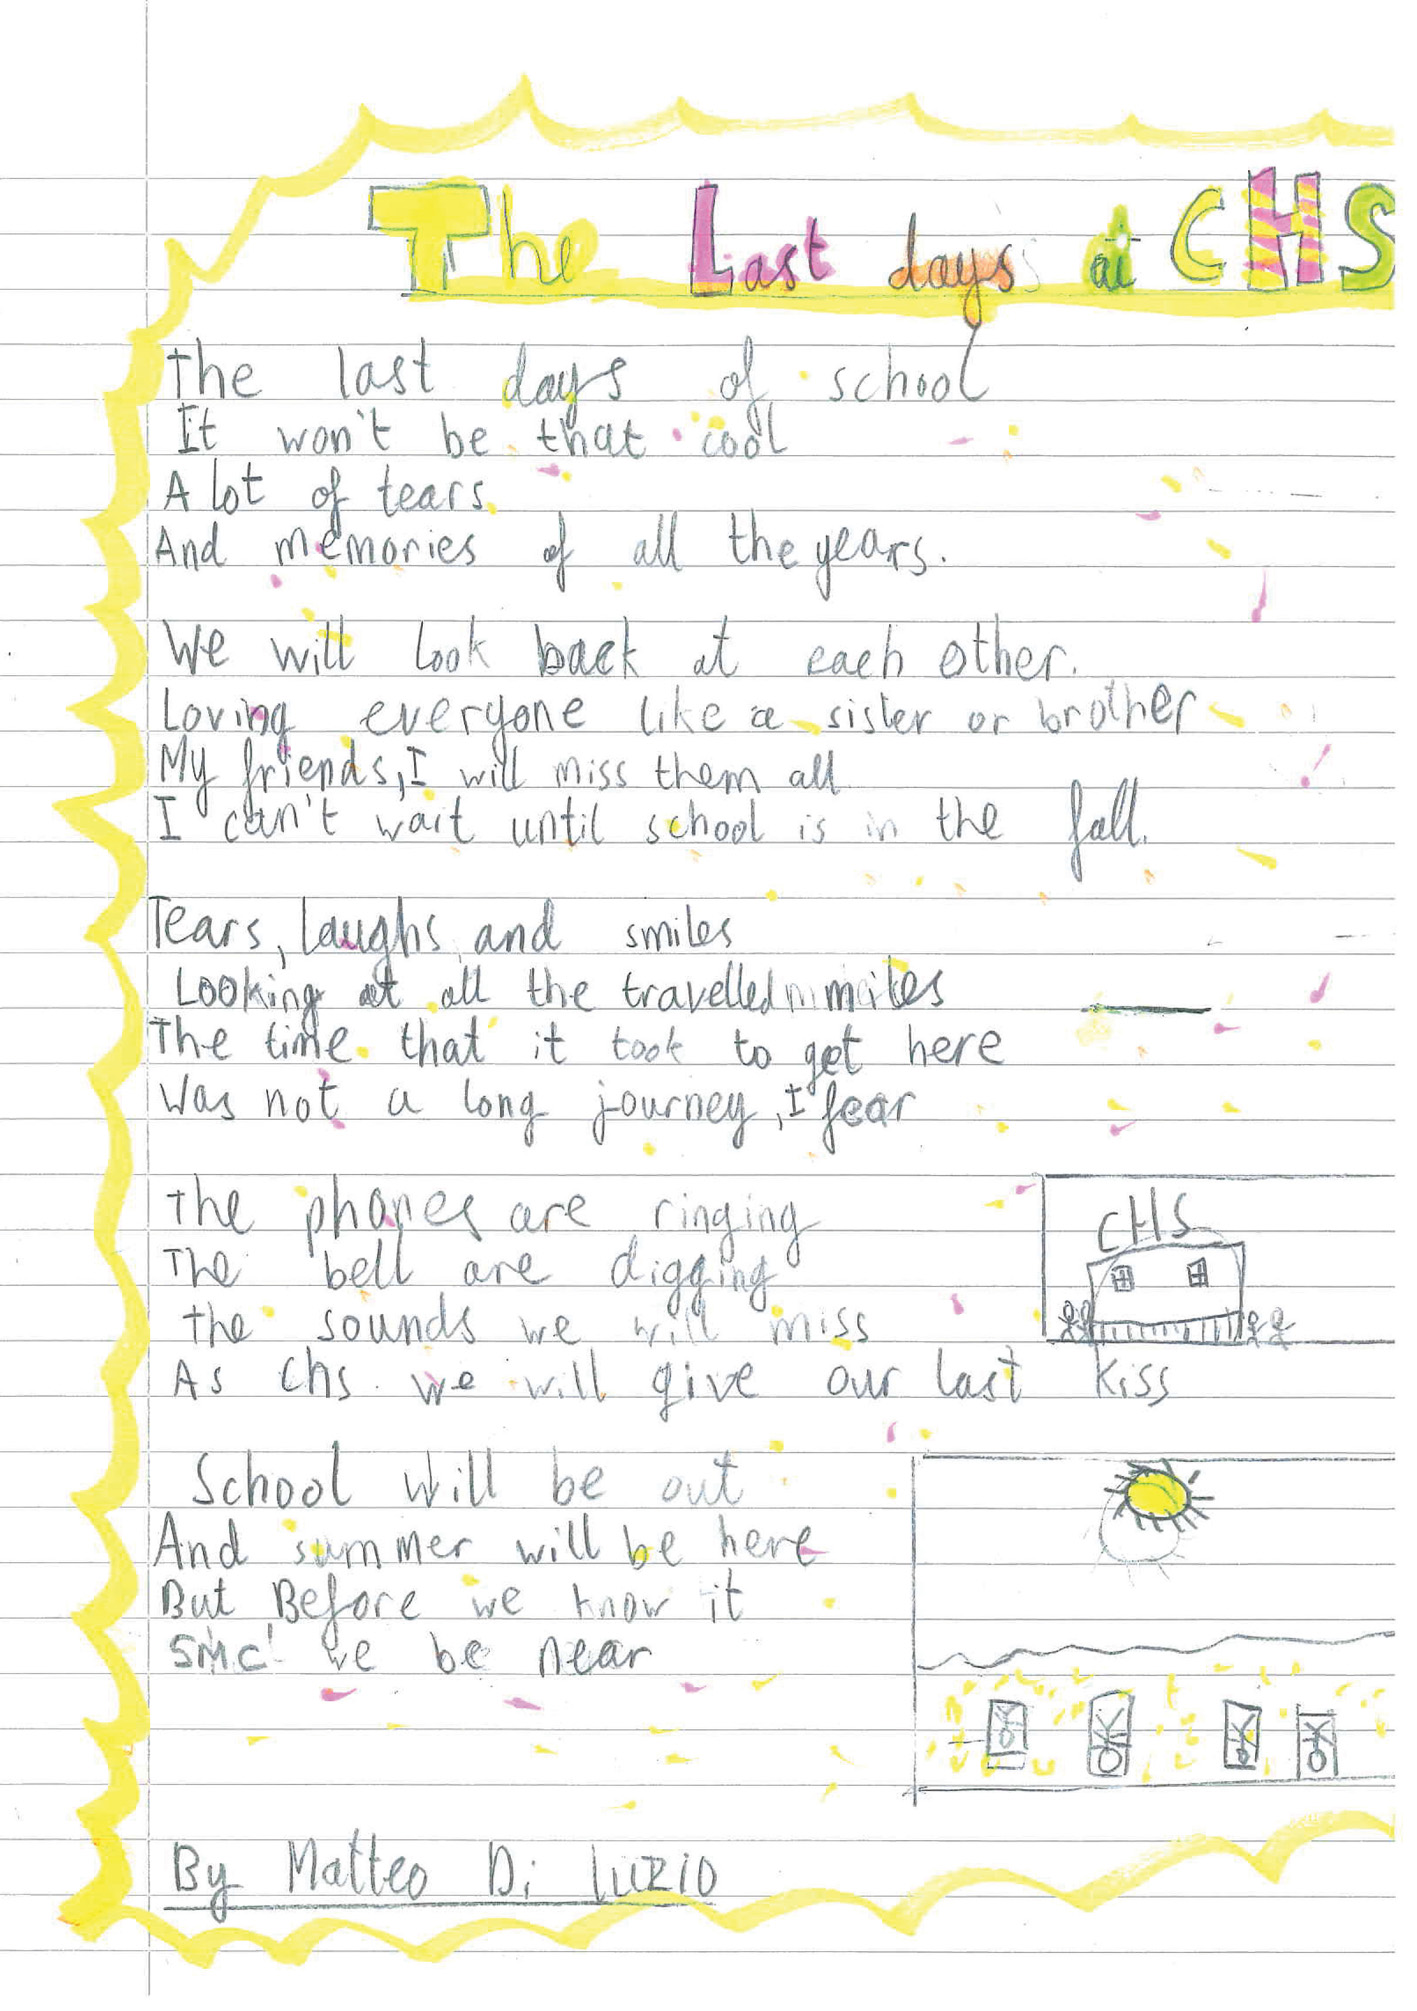 The Last days at CHS
The last days of school
It won't be that cool
A lot of tears
And memories of all the years.
We will look back at each other.
Loving everyone like a sister or brother
My friends, I will miss them all
I can't wait until school is in the fall.
Tears, laughs, and smiles
Looking at all the travelled miles
The time that it took to get here
Was not a long journey, I fear
The phones are ringing
The bell are digging
The sounds we will miss
As chs we will give our last kiss
CHS
School will be out
And summer will be here
But Before we know it
SMC we be near
By Matteo Di Luzio